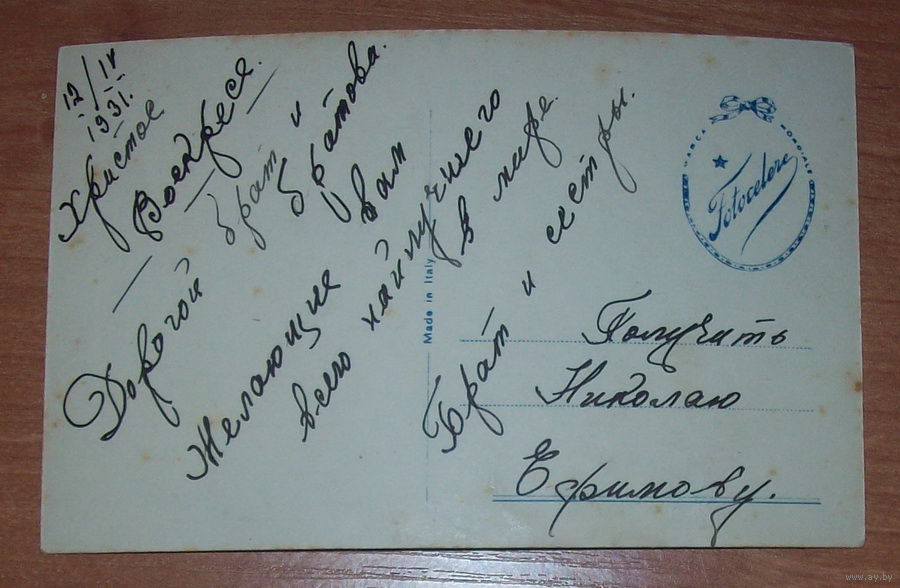 12/IV
1931.
Христос
Воскресе.
Дорогой брат и братова.
Желающие вам
всего найлучшего
в мире.
Брат и сестры.
Made in Italy
MARCA MONDIALE
Fotocelere
Получить
Николаю
Ефимову.
www.ay.by